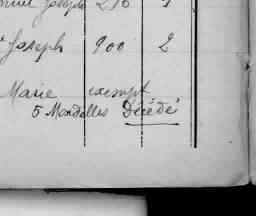 Joseph 210 1
Joseph 900 2
Marie exempt
5 Mondelles Décédé